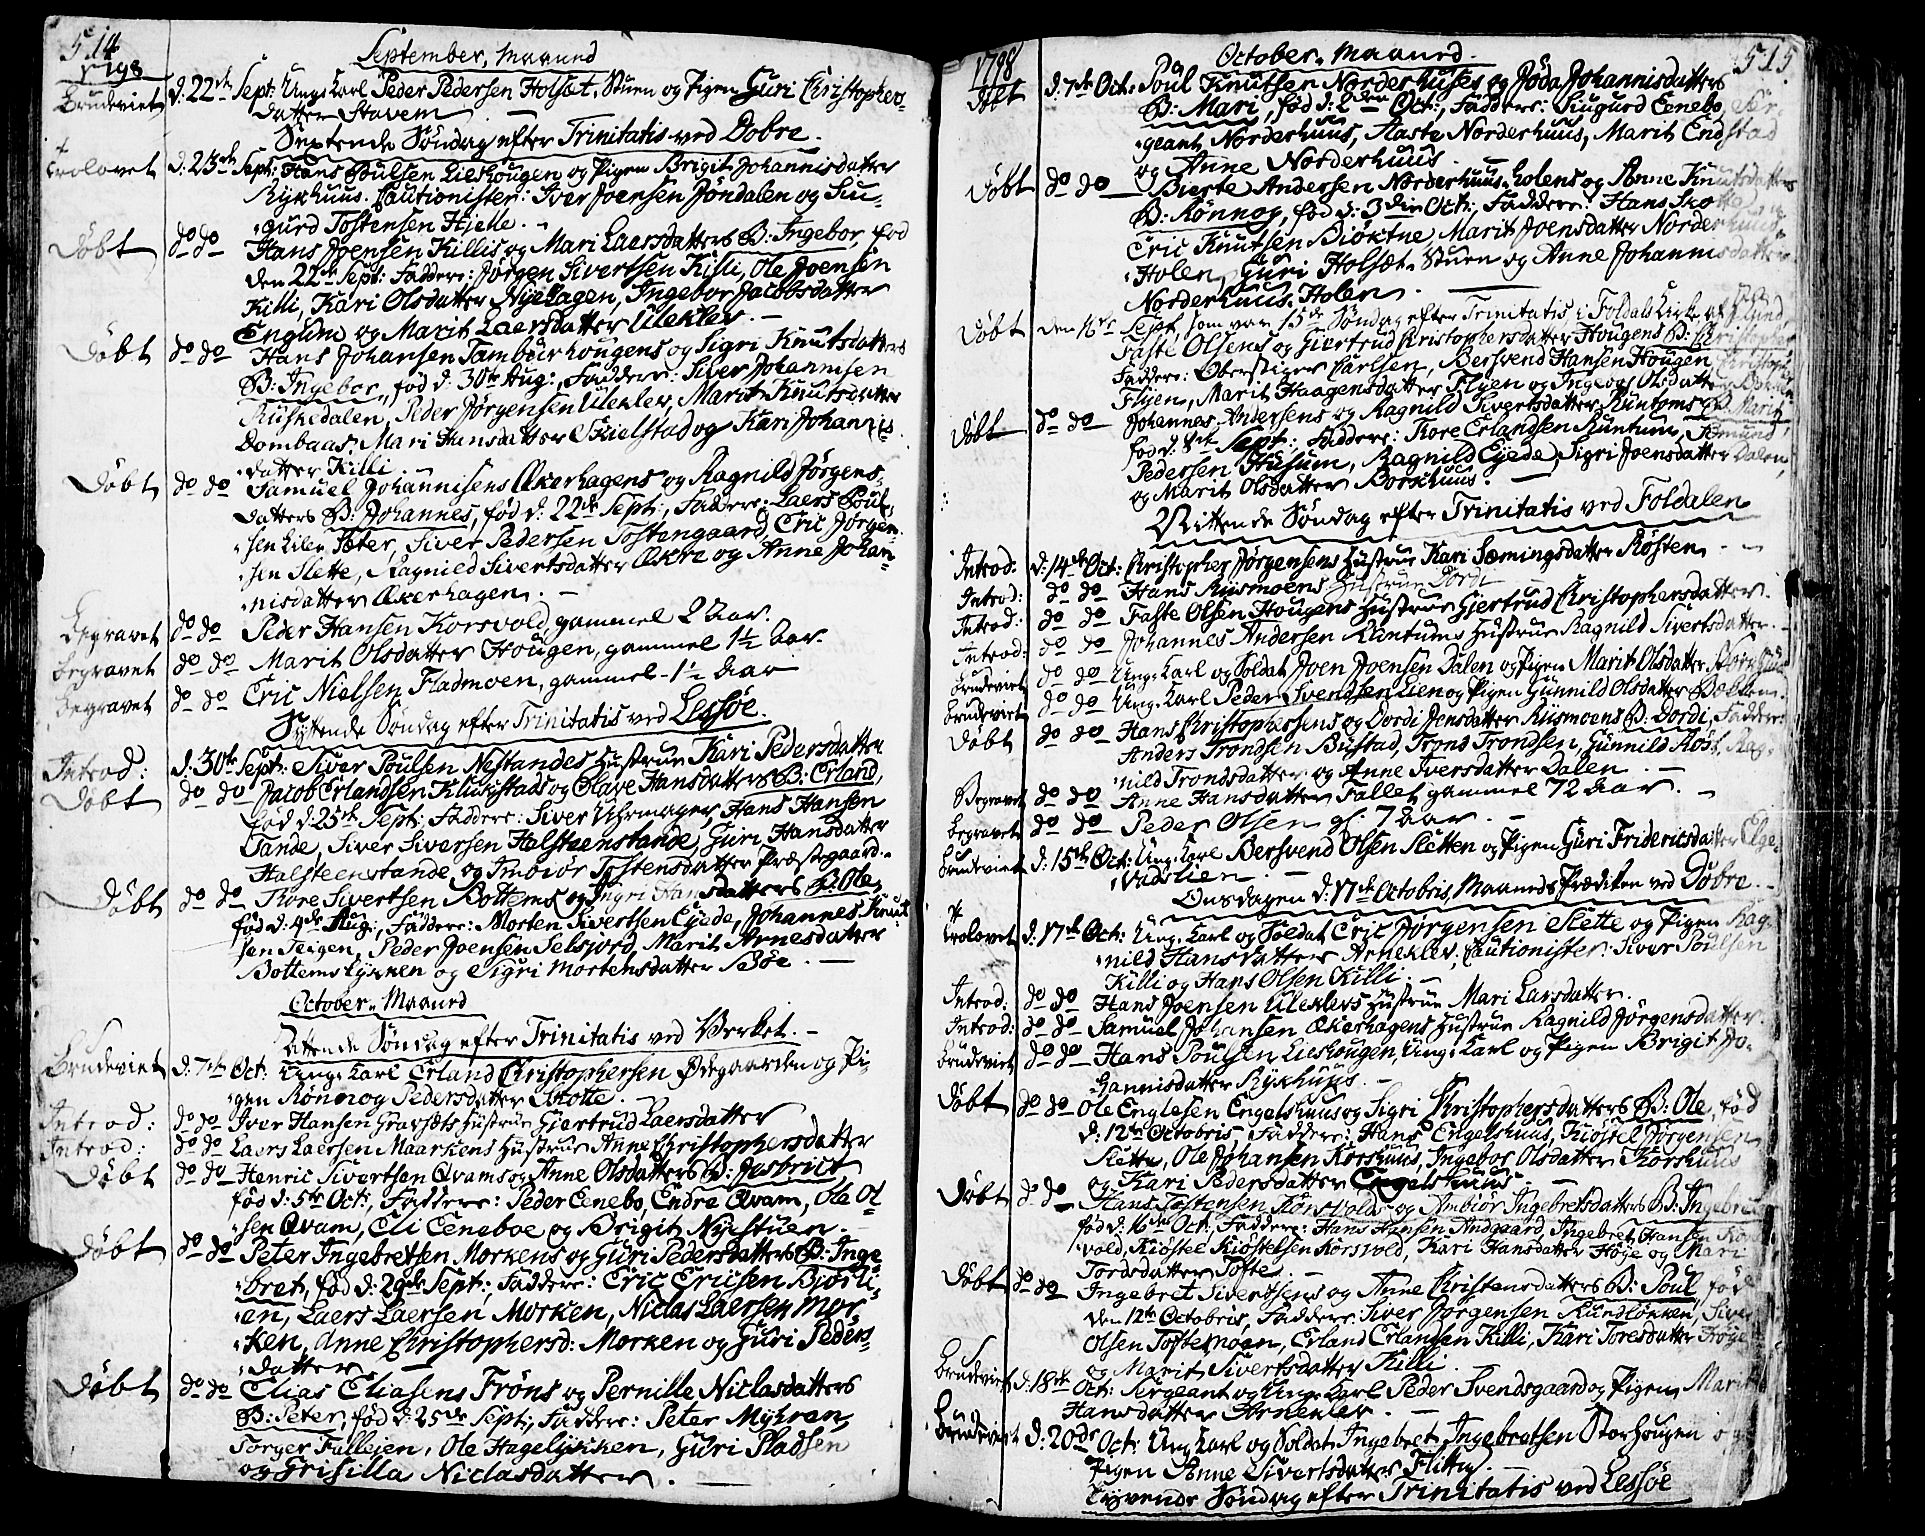 514
1798
September, Maaned
Brudeviet d: 22de Sept: Ung Karl Peder Pedersen Holsæt-Stuen og Pigen Guri Christophers-
datter Stavem
Sextende Søndag efter Trinitatis ved Dobre.
Trolovet d: 23de Sept: Hans Poulsen Lieshougen og Pigen Brigit Johannisdatter
Rykhuus. Cautionister: Iver Joensen Jondalen og Siu-
gurd Tostensen Hjelle.
Døbt do do Hans Joensen Killis og Mari Laersdatters B: Ingebor, fød
den 22de Sept: Faddere: Jørgen Sivertsen Killi, Ole Joensen
Killi, Kari Olsdatter Nyehagen, Ingebor Jacobsdatter
Englum og Marit Laersdatter Uleklev.
Døbt do do Hans Johansen Tambuurhougens og Sigri Knutsdatters
B: Ingebor, fød d: 30te Aug:, Faddere: Siver Johannisen
Ruskedalen, Peder Jørgensen Ulekler, Marit Knutsdatter
Dombaas, Mari Hansdatter Skielstad og Kari Johannis-
datter Killi.
Døbt do do Samuel Johannisens Ækerhagens og Ragnild Jørgens-
datters B: Johannes, fød d: 22de Sept:, Faddere: Laers Poul-
sen Lilee Sæter, Siver Pedersen Tostengaard, Eric Jørgen-
sen Slette, Ragnild Sivertsdatter Ækre og Anne Johan-
nisdatter Ækerhagen.
Begravet do do Peder Hansen Korsvold, gammel 2 Aar.
begravet do do Marit Olsdatter Hougen, gammel 1½ Aar.
begravet do do Eric Nielsen Fladmoen, gammel 1½ Aar
Syttende Søndag efter Trinitatis ved Lessøe.
Introd: d: 30te Sept: Siver Poulsen Nestandes Hustrue Kari Pedersdatter
Døbt do do Jacob Erlandsen Klukstads og Olave Hansdatters B: Erland,
fød d: 25de Sept: Faddere: Siver Uhrmager, Hans Hansen
Sande, Siver Siversen Halsteenstande, Guri Hansdatter
Halsteenstande og Imbiør Tostensdatter Præstegaard.
Døbt do do Tore Sivertsen Bottems og Ingri Hansdatters B: Ole,
fød d: 4de Aug:, Faddere: Morten Sivertsen Eyede, Johannes Knut-
sen Teigen, Peder Joensen Selsjord, Marit Arnesdatter
Bottemslykken og Sigri Mortensdatter Bøe.
October-Maaned
Attende Søndag efter Trinitatis ved Verket.
Brudeviet d: 7de Oct: Ung Karl Erland Christophersen Ødegaarden og Pi-
gen Rønnog Pedersdatter Skotte.
Introd: do do Iver Hansen Gravsæts Hustrue Giertrud Laersdatter
Introd: do do Laers Laersen Maarkens Hustrue Anne Christophersdatter
Døbt do do Henric Sivertsen Qvams og Anne Olsdatters B: Josbrict,
fød d: 5te Oct:, Faddere: Peder Eenebo, Endre Qvam, Ole Ol-
sen Qvam, Eli Eneboe og Brigit Nystuen.
Døbt do do Peter Ingebretsen Morkens og Guri Pedersdatters B: Inge-
bret, fød d: 29de Sept: Faddere: Eric Ericsen Biørli-
en, Laers Laersen Morken, Niclas Laersen Mor-
ken, Anne Christophersd: Morken og Guri Peders-
datter
Døbt do do Elias Eliasens Frøns og Pernille Niclasdatters
B: Peter, fød d: 25de Sept:, Faddere: Peter Myhren,
Torger Fallejen, Ole Hagelykken, Guri Pladsen
og Grisilla Niclasdatter.
1798
October-Maaned
515
Døbt d: 7de Oct: Poul Knutsen Norderhuses og Jøda Johannisdatters
B: Mari, fød d: 2den Oct:, Faddere: Siugurd Eenebo, Ser-
geant Norderhuus, Aaste Norderhuus, Marit Endstad
og Anne Norderhuus.
Døbt do do Bierte Andersen Norderhuus-holens og Anne Knutsdatters
B: Rønnog, fød d: 3die Oct:, Faddere: Hans Skotte,
Eric Knutsen Biøkne, Marit Joensdatter Norderhuus-
Holen, Guri Holsæt-Stuen og Anne Johannisdatter
Norderhuus-Holen.
Døbt den 16de Sept, som var 15de Søndag efter Trinitatis i Foldals Kirke af
Faste Olsens og Giertrud Christophersdatter Hougens B:
Faddere: Oberstiger Carlsen, Bersvend Hansen Hougen,
Flyen, Marit Haagensdatter Flyen og Ingebor Olsdatter
Døbt do do Johannes Andersens og Ragnild Sivertsdatter Kuntoms B: Marit,
fød d: 8de Sept: Faddere: Tore Erlandsen Kuntum, Iomund
Pedersen Husum, Ragnild Eyede, Sigri Joensdatter Dalen,
og Marit Olsdatter Borkhuus.
Nittende Søndag efter Trinitatis ved Foldalen
Introd: d: 14de Oct: Kristopher Jørgensens Hustrue Kari Sæmingsdatter Røsten
Introd: do do Hans Rysmoens Hustrue Dordi
Introd: do do Faste Olsen Hougens Hustrue Gjertrud Christophersdatter.
Introd: do do Johannes Andersen Kuntums Hustrue Ragnild Sivertsdatter.
Brudeviet do do Ung Karl og Soldat Joen Joensen Dalen og Pigen Marit Olsdatter
Brudeviet do do Ung Karl Peder Svendsen Lien og Pigen Gunnild Olsdatter Bækken.
Døbt do do Hans Christophersens og Dordi Jensdatter Rusmoens B: Dordi, Faddere:
Anders Trondsen Bustad, Trond Trondsen, Gunnild Røst, Rag-
nild Trondsdatter og Anne Iversdatter Dalen.
Begravet do do Anne Hansdatter Fallet gammel 72 Aar.
begravet do do Peder Olsen gl. 7 Aar.
Brudeviet d: 15de Oct: Ung Karl Bersvend Olsen Sletten og Pigen Guri Fridericsdatter Elge-
vadslien.
Onsdagen d: 17de Octobris, Maaneds Prædiken ved Dobre.
Trolovet d: 17de Oct: Ung Karl og Soldat Eric Jørgensen Slette og Pigen Rag-
nild Hansdatter Arnekler, Cautionister: Siver Poulsen
Killi og Hans Olsen Killi.
Introd: do do Hans Joensen Uleklers Hustrue Mari Larsdatter.
Introd: do do Samuel Johansen Ækerhagens Hustrue Ragnild Jørgensdatter
Brudeviet do do Hans Poulsen Lieshougen, Ung Karl og Pigen Brigit Jo-
hannisdatter Rykhuus.
Døbt do do Ole Englesen Engelshuus og Sigri Christophersdatters B: Ole, fød
d: 12te Octobris, Faddere: Hans Engelshuus, Kiøstel Jørgensen
Slette, Ole Johansen Korshuus, Ingebor Olsdatter Korshuus
og Kari Pedersdatter Engelshuus.
Døbt do do Hans Tostensen Kørsvolds og Ambiør Ingebretsdatters B: Ingebret
fød d: 16de Oct: Faddere: Hans Hansen Andgaard, Ingebret Hansen Kors-
vold, Kiøstel Kiøstelsen Korsvold, Kari Hansdatter Høye og Mari
Tordsdatter Tofte
Døbt do do Ingebret Sivertsens og Anne Christensdatters B: Poul, fød
den 12te Octobris, Faddere: Siver Jørgensen Rundløkken, Siver
Olsen Toftemoen, Erland Erlandsen Killi, Kari Toresdatter Trøge
og Marit Sivertsdatter Killi.
Brudeviet d: 18de Oct: Sergeant og Ung Karl Peder Svendsgaard og Pigen Marit
Hansdatter Arnekler.
Brudeviet d: 20de Oct: Ung Karl og Soldat Ingebret Ingebretsen Storhougen og
Pigen Anne Sivertsdatter Flitty.
Tyvende Søndag efter Trinitatis ved Lessøe